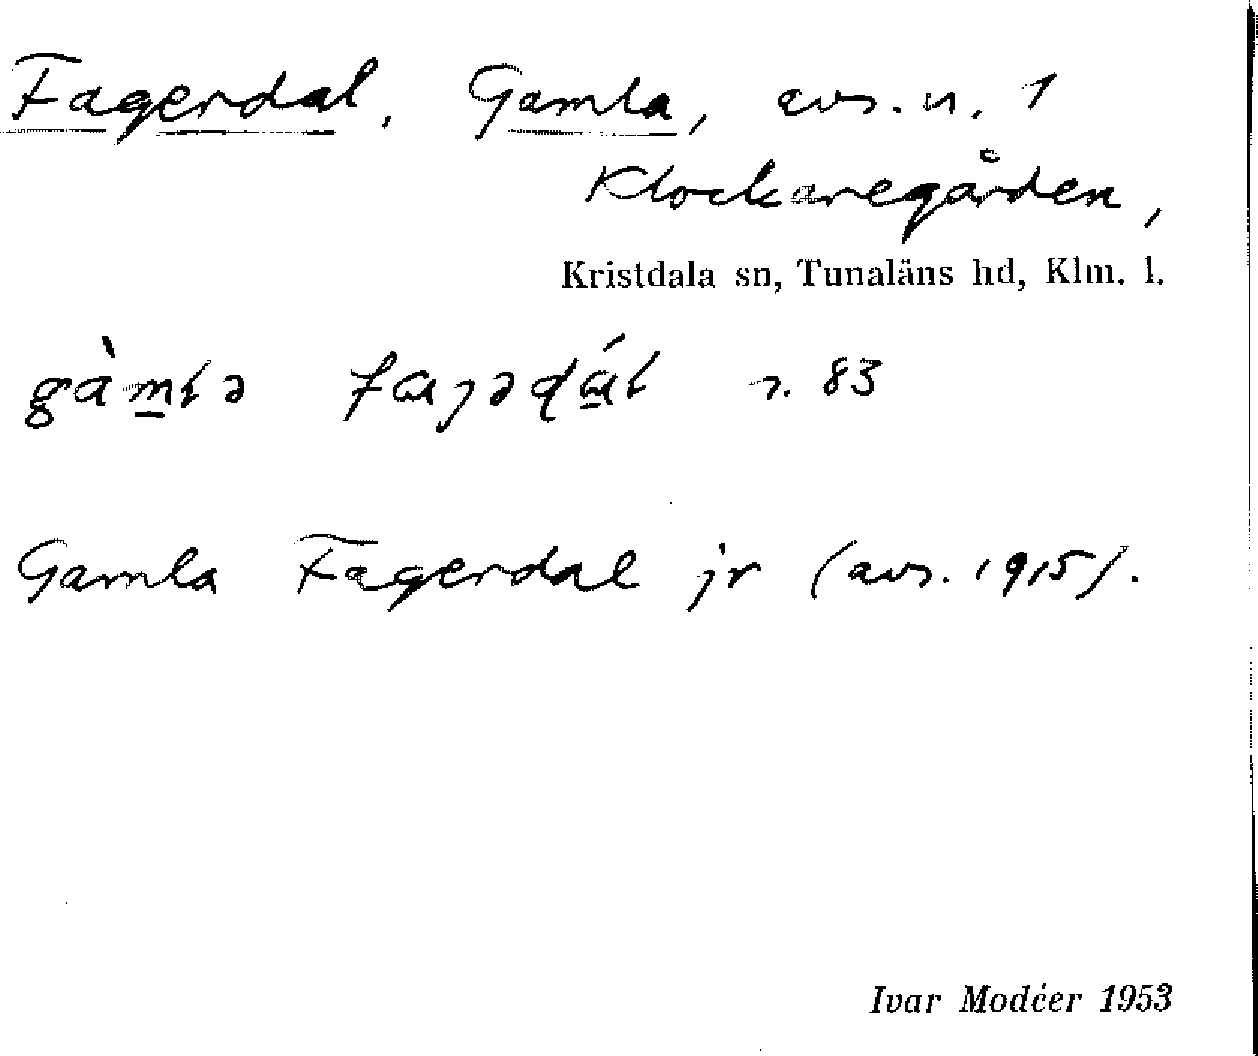 Fagerdal, Gamla, avs. u. 1
Klockaregården,
Kristdala sn, Tunaläns hd, Klm. l.
gàmlə fajədál n. 83
Gamla Fagerdal jr (avs. 1915).
Ivar Modéer 1953